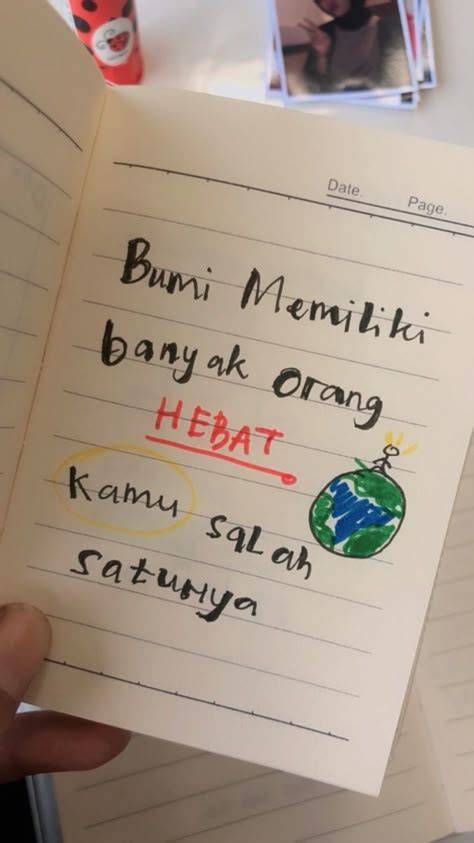 Date. Page.
Bumi Memiliki
banyak orang
HEBAT
Kamu salah
satunya